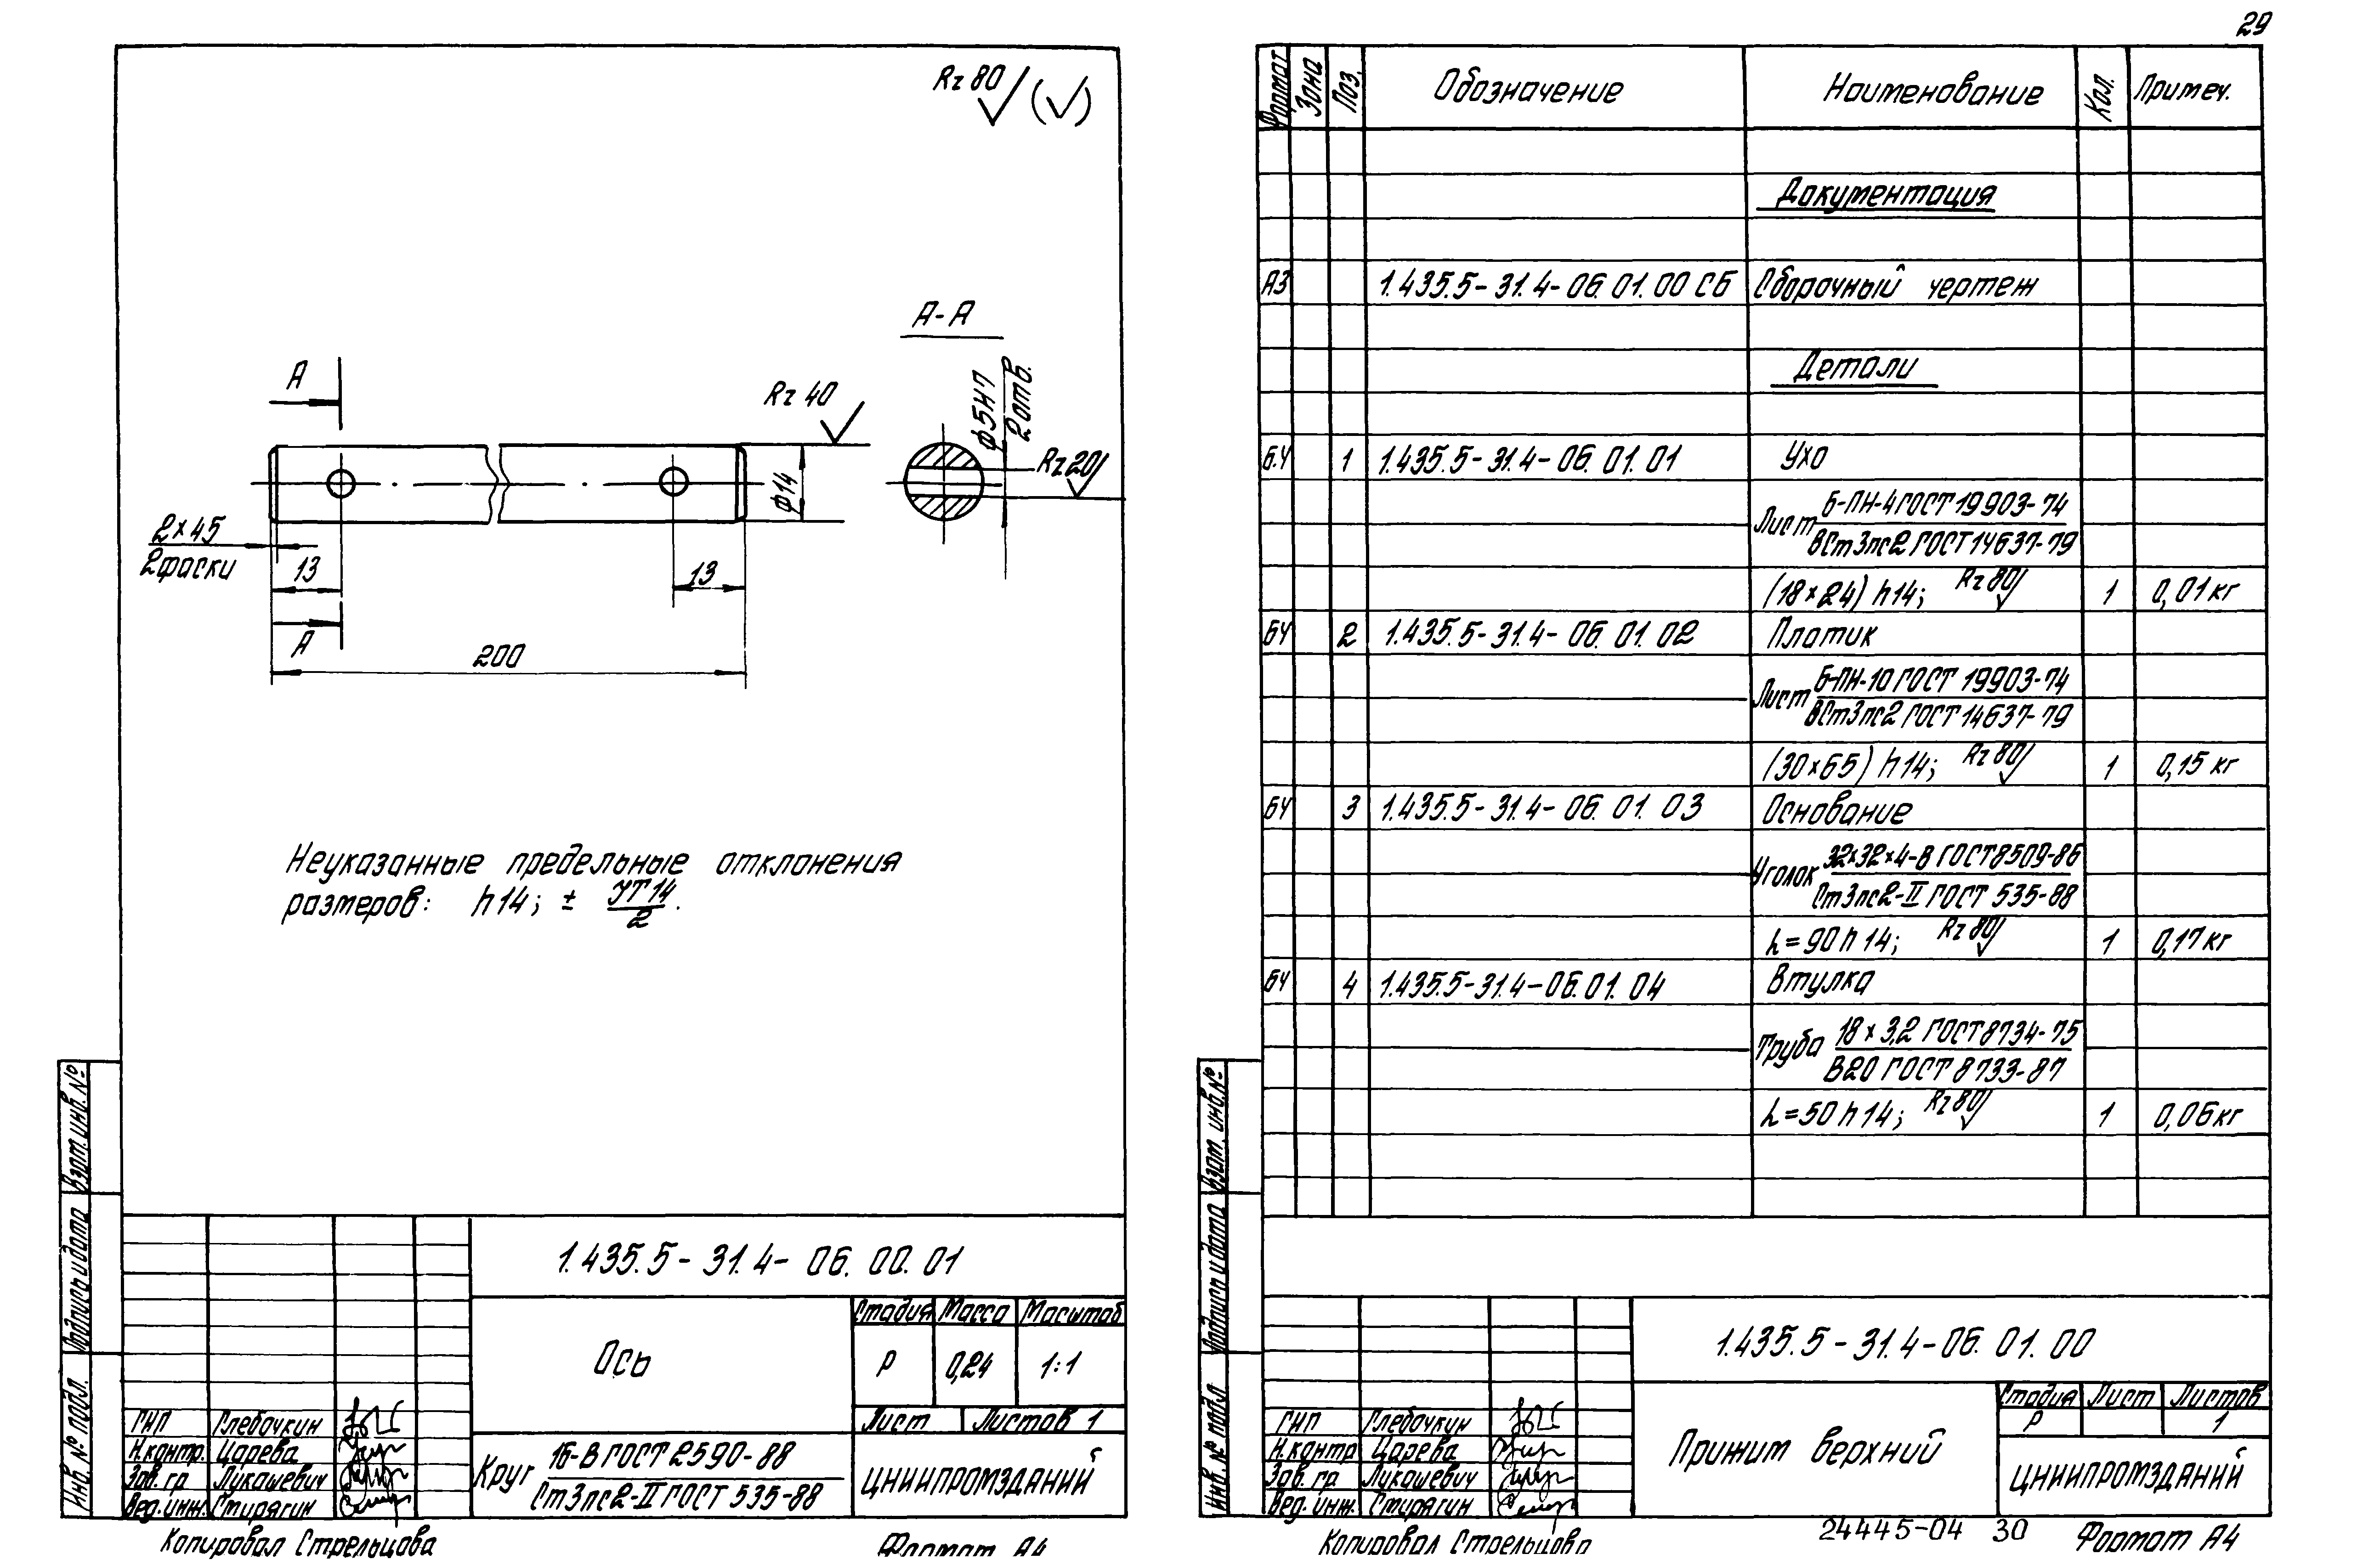 29
Rz 80 (√)
А-А
А
Rz 40
ф5Н7
2 отв.
Rz 20
ф14
2×45
2 фаски
13
13
А
200
Неуказанные предельные отклонения
размеров: h14; ± JT14/2.
Взам. инв. №
Подпись и дата
Инв. № подл.
1.435.5-31.4-06.00.01
Ось
Стадия Масса Масштаб
Р 0,24 1:1
Лист Листов 1
Круг 16-В ГОСТ 2590-88
Ст3пс2-II ГОСТ 535-88
ЦНИИПРОМЗДАНИЙ
ГИП Глебочкин
Н.контр. Царева
Зав. гр Лукашевич
Вед. инж. Стирягин
Копировал Стрельцова
Формат А4
Формат Зона Поз. Обозначение Наименование Кол. Примеч.
Документация
А3 1.435.5-31.4-06.01.00 СБ Сборочный чертеж
Детали
Б.Ч 1 1.435.5-31.4-06.01.01 Ухо
Лист Б-ПН-4 ГОСТ 19903-74
ВСт3пс2 ГОСТ 14637-79
(18×24) h14; Rz 80 1 0,01 кг
БЧ 2 1.435.5-31.4-06.01.02 Платик
Лист Б-ПН-10 ГОСТ 19903-74
ВСт3пс2 ГОСТ 14637-79
(30×65) h14; Rz 80 1 0,15 кг
БЧ 3 1.435.5-31.4-06.01.03 Основание
Уголок 32×32×4-В ГОСТ 8509-86
Ст3пс2-II ГОСТ 535-88
L=90 h14; Rz 80 1 0,17 кг
БЧ 4 1.435.5-31.4-06.01.04 Втулка
Труба 18×3,2 ГОСТ 8734-75
В20 ГОСТ 8733-87
L=50 h14; Rz 80 1 0,06 кг
Взам. инв. №
Подпись и дата
Инв. № подл
1.435.5-31.4-06.01.00
Прижим верхний
Стадия Лист Листов
Р 1
ЦНИИПРОМЗДАНИЙ
ГИП Глебочкин
Н.контр Царева
Зав. гр Лукашевич
Вед. инж. Стирягин
Копировал Стрельцова
24445-04 30
Формат А4